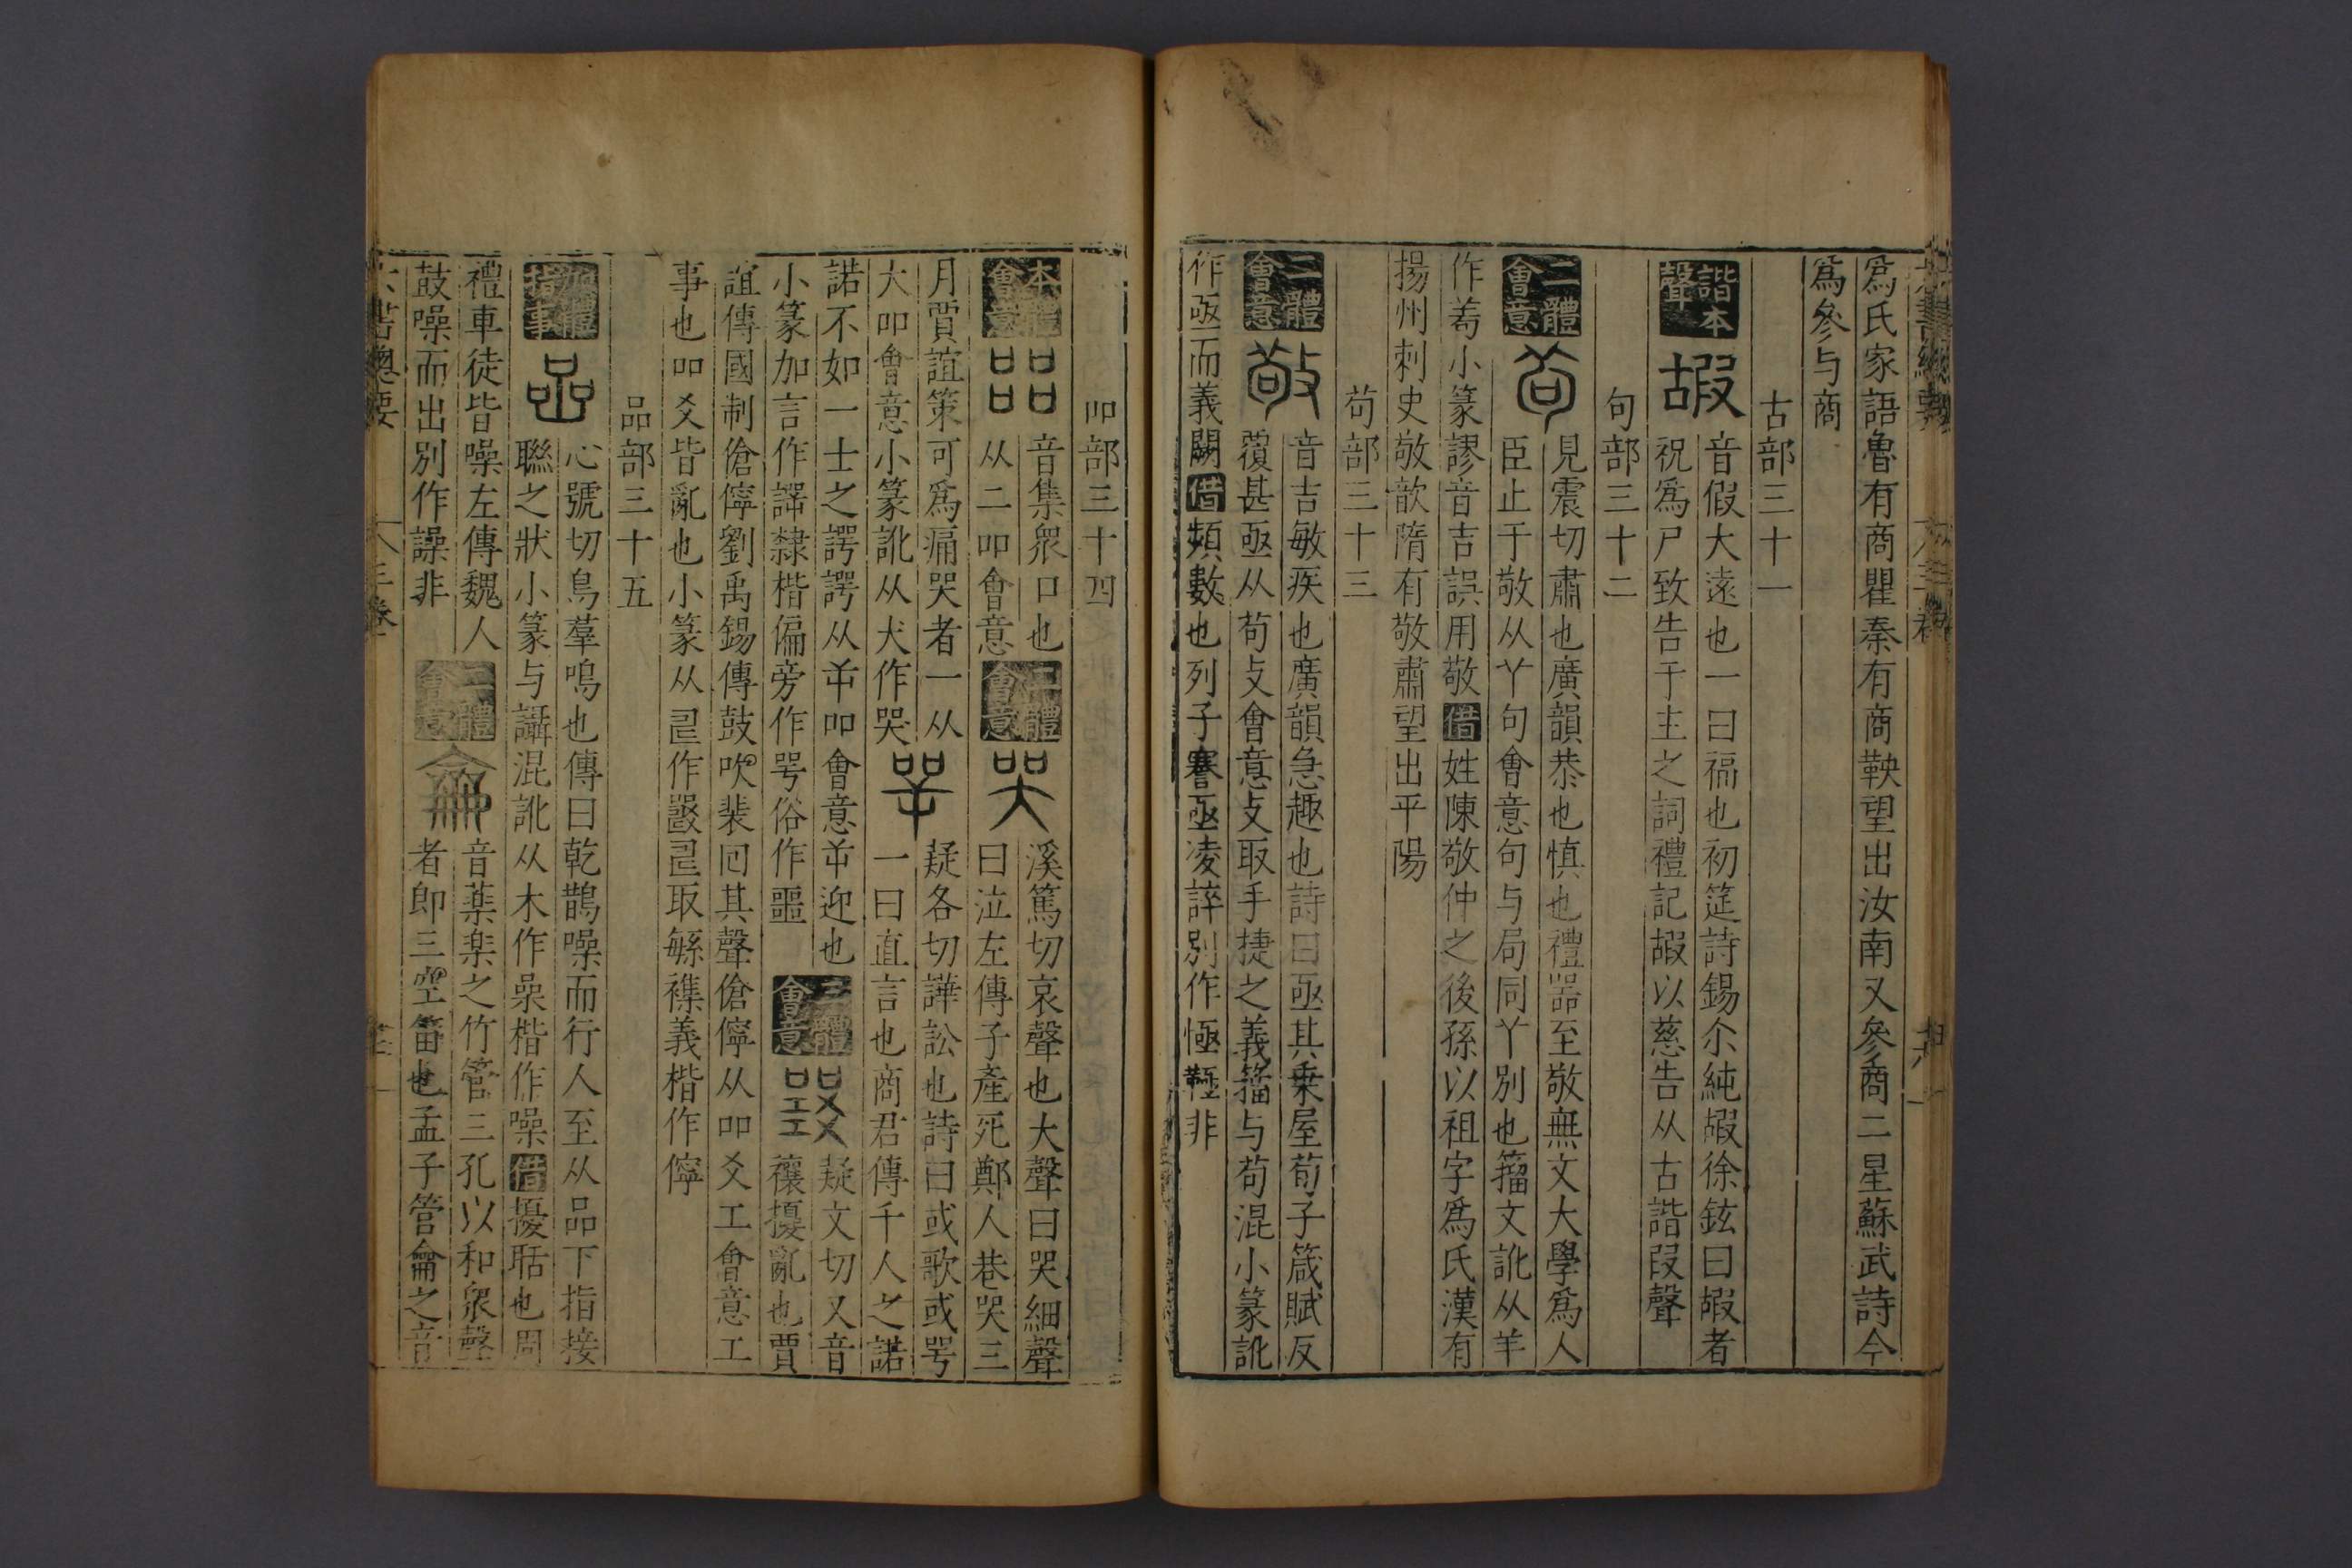 爲氏家語魯有商瞿秦有商鞅望出汝南又參商二星蘇武詩今
爲參与商
古部三十一
諧本聲
嘏
音假大遠也一曰福也初筵詩錫尒純嘏徐鉉曰嘏者
祝爲尸致告于主之詞禮記嘏以慈告从古諧叚聲
句部三十二
二體會意
見震切肅也廣韻恭也慎也禮器至敬無文大學爲人
臣止于敬从丫句會意句与局同丫別也籀文訛从羊
作茍小篆謬音吉誤用敬借姓陳敬仲之後孫以祖字爲氏漢有
揚州刺史敬歆隋有敬肅望出平陽
茍部三十三
二體會意
音吉敏疾也廣韻急趣也詩曰亟其乗屋荀子箴賦反
覆甚亟从茍攴會意攴取手捷之義籀与茍混小篆訛
作亟而義闕借頻數也列子謇亟凌誶別作恆𩋏非
吅部三十四
本體會意
㗊
音集衆口也
从二吅會意
二體會意
哭
溪篤切哀聲也大聲曰哭細聲
曰泣左傳子產死鄭人巷哭三
月賈誼策可爲痛哭者一从
大吅會意小篆訛从犬作哭
咢
疑各切譁訟也詩曰或歌或咢
一曰直言也商君傳千人之諾
諾不如一士之諤諤从屰吅會意屰迎也
小篆加言作諤隸楷偏旁作咢俗作噩
三體會意
疑文切又音
襄擾亂也賈
誼傳國制傖儜劉禹錫傳鼓吹裴回其聲傖儜从吅爻工會意工
事也吅爻皆亂也小篆从𠬪作㗮𠬪取緐襍義楷作儜
品部三十五
加體指事
心號切鳥羣鳴也傳曰乾鵲噪而行人至从品下指接
聯之狀小篆与讘混訛从木作喿楷作噪借擾聒也周
禮車徒皆噪左傳魏人
鼓噪而出別作譟非
二體會意
龠
音藥楽之竹管三孔以和衆聲
者即三空笛也孟子管龠之音
六書總要